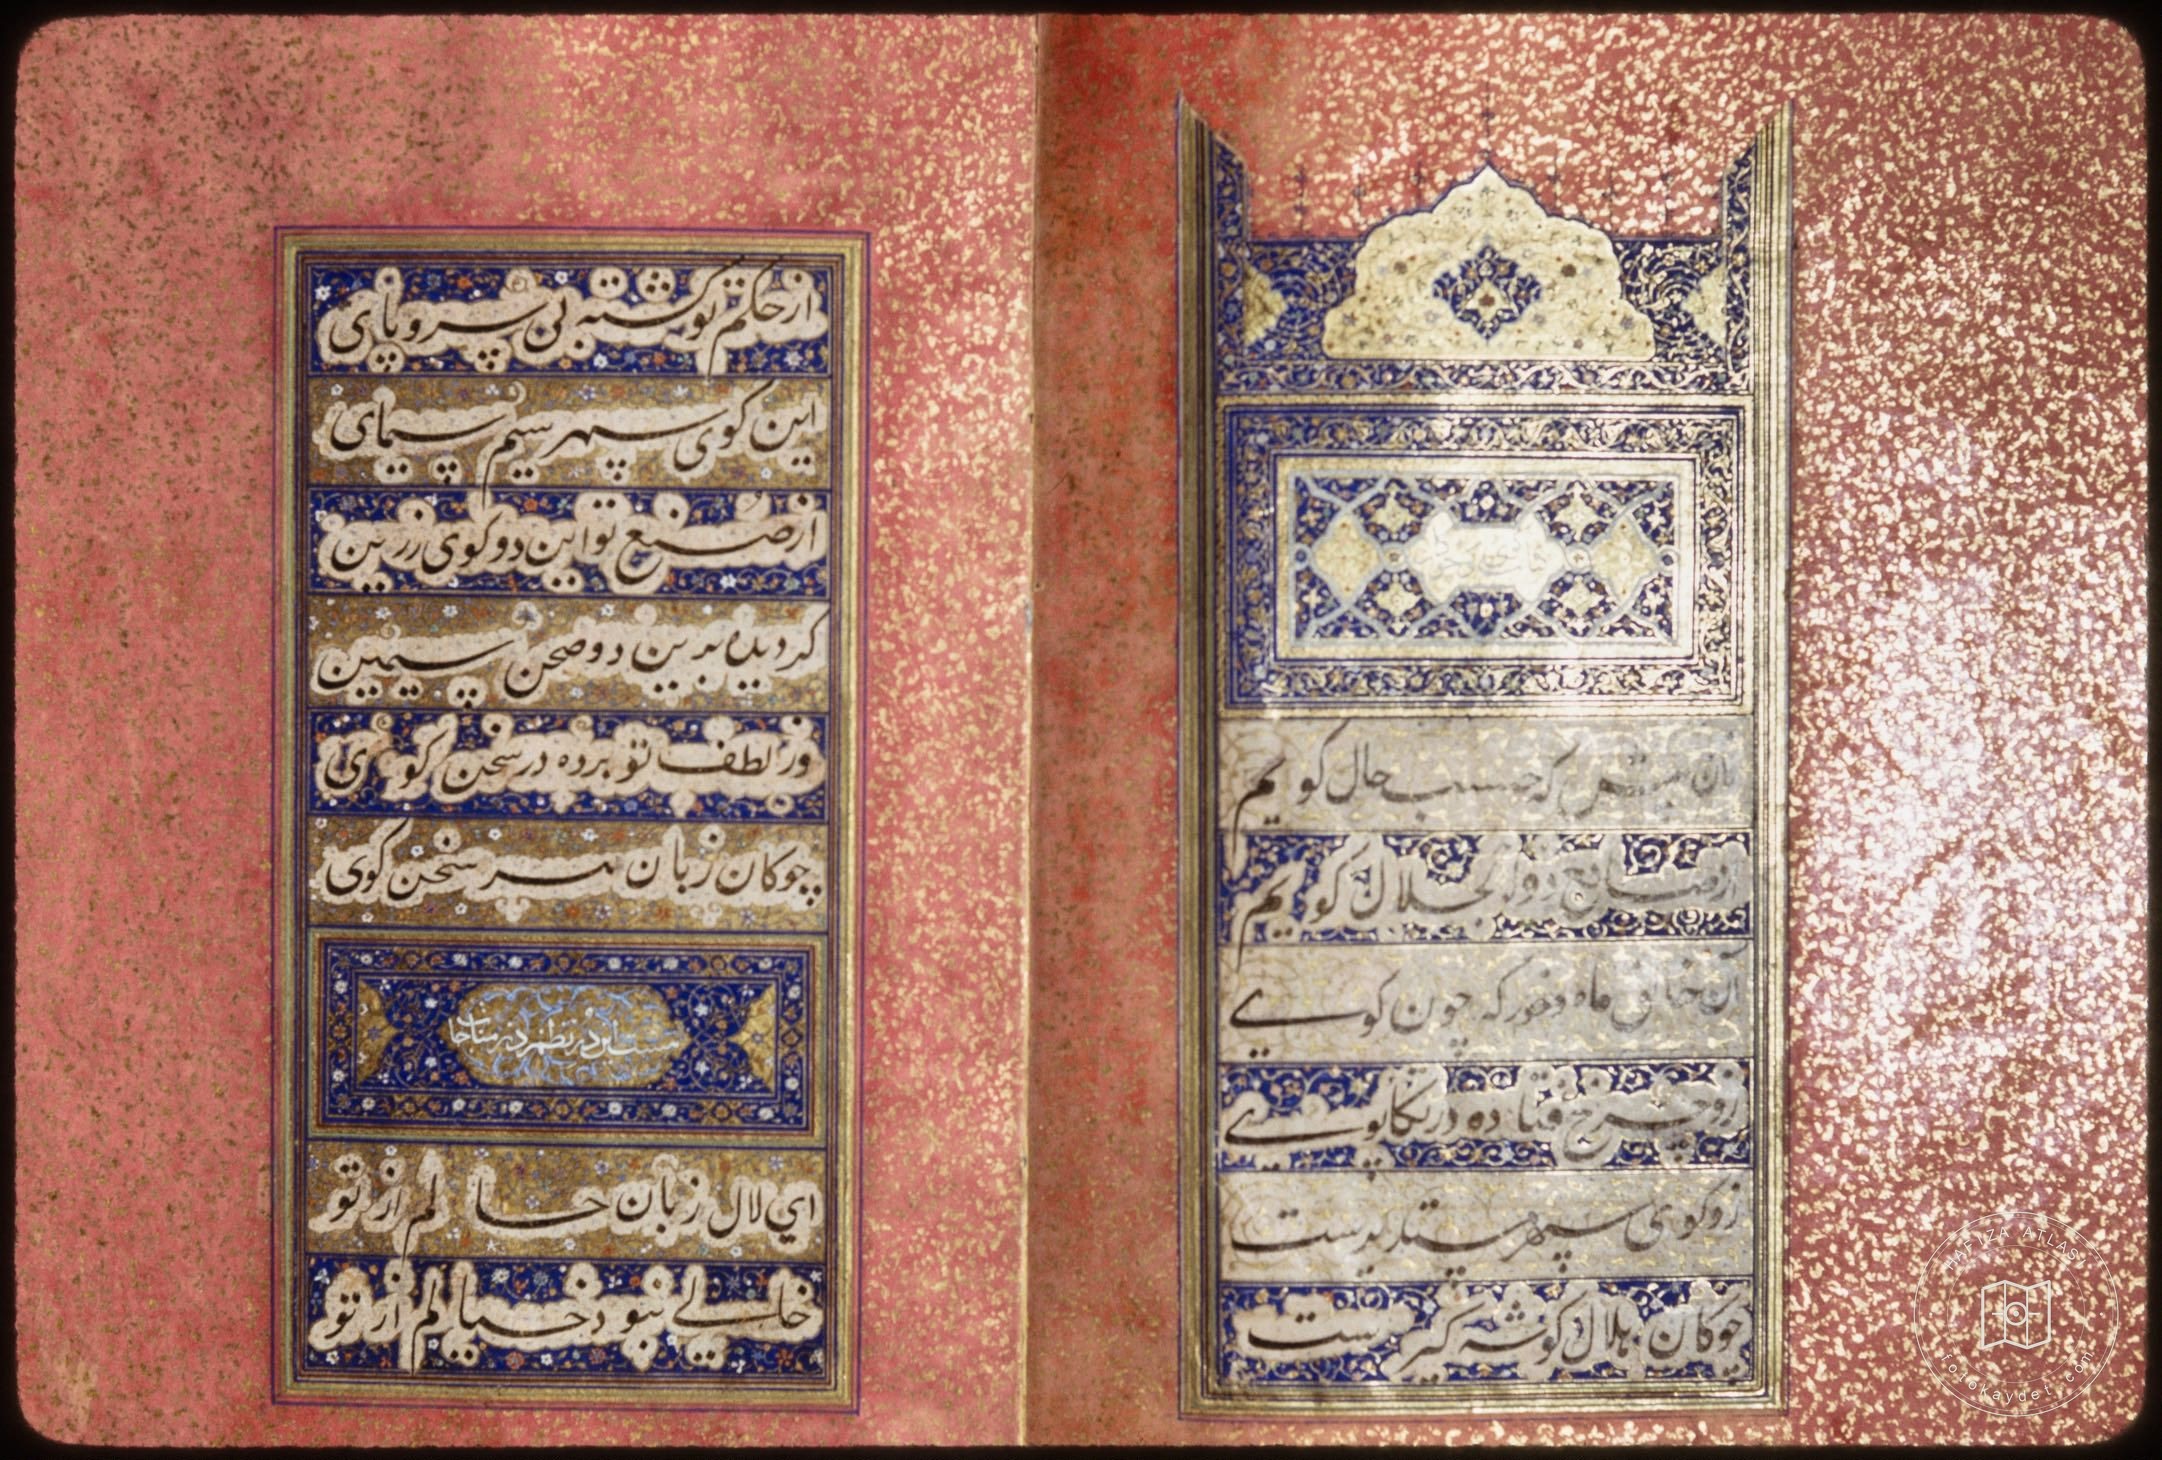 زان پیش که حسب حال گویم
از صانع ذوالجلال گویم
آن خالق ماه و خور که چون گوی
زو چرخ فتاده در تکاپوی
زو گوی سپهر
چوکان هلال گوشه گیر ست
از حکم تو گشته بی سر و پای
این گوی سپهر سیم سیمای
از صنع تو این دو گوی زرین
گردیده بدین دو صحن سیمین
وز لطف تو برده در سخن گوی
چوکان زبان هر سخن گوی
در مناجات
ای لال زبان حالم از تو
خالی نبود خیالم از تو
HAFIZA ATLASI
fotokaydet.com